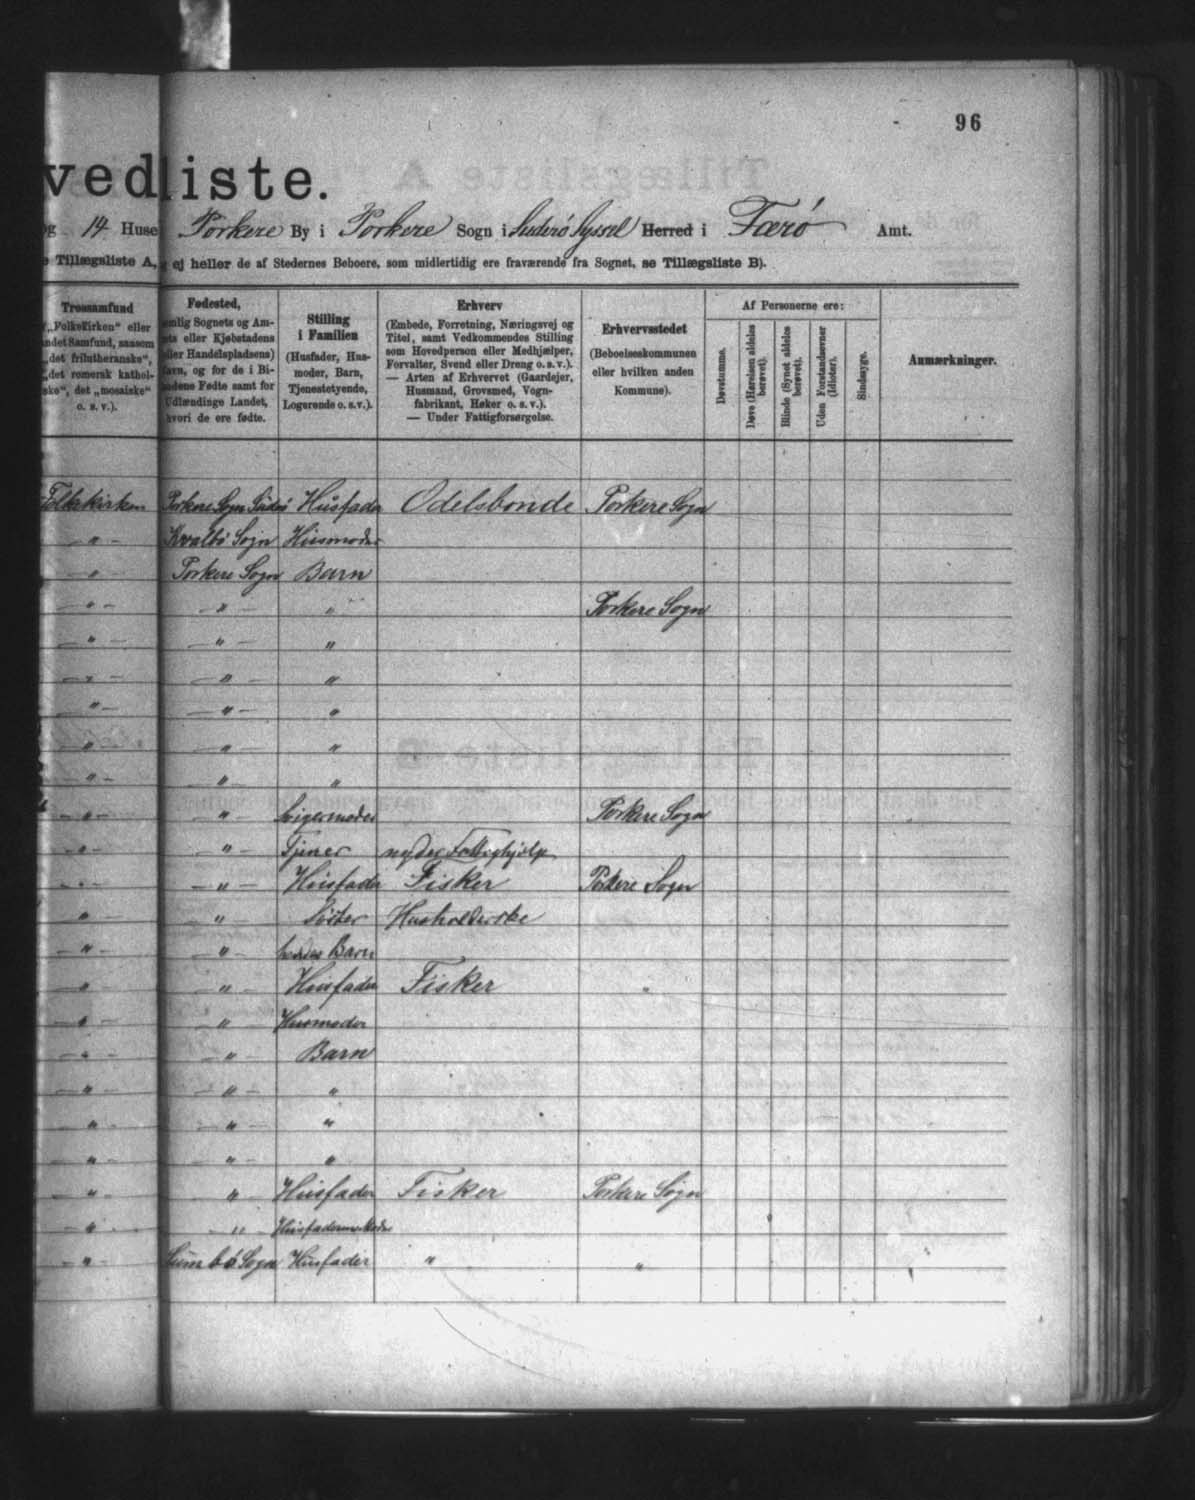 96
vedliste.
og 14 Huse Porkere By i Porkere Sogn i Suderø Syssel Herred i Færø Amt.
e Tillægsliste A, ej heller de af Stedernes Beboere, som midlertidig ere fraværende fra Sognet, se Tillægsliste B).
Trossamfund
„Folkekirken" eller
andet Samfund, saasom
„det frilutheranske",
„det romersk kathol-
ske", det „mosaiske"
o. s. v.).
Fødested,
nemlig Sognets og Am-
ets eller Kjøbstadens
eller Handelspladsens)
Navn, og for de i Bi-
andene Fødte samt for
Udlændinge Landet,
hvori de ere fødte.
Stilling
i Familien
(Husfader, Hus-
moder, Barn,
Tjenestetyende,
Logerende o. s. v.).
Erhverv
(Embede, Forretning, Næringsvej og
Titel, samt Vedkommendes Stilling
som Hovedperson eller Medhjælper,
Forvalter, Svend eller Dreng o. s. v.).
— Arten af Erhvervet (Gaardejer,
Husmand, Grovsmed, Vogn-
fabrikant, Høker o. s. v.).
— Under Fattigforsørgelse.
Erhvervsstedet
(Beboelseskommunen
eller hvilken anden
Kommune).
Af Personerne ere:
Døvstumme.
Døve (Hørelsen aldeles
berøvet).
Blinde (Synet aldeles
berøvet).
Uden Forstandsevner
(Idioter).
Sindssyge.
Anmærkninger.
Folkekirken Porkere Sogn Süderø Husfader Odelsbonde Porkere Sogn
— " — Kvalbø Sogn Husmoder
— " — Porkere Sogn Barn
— " — — " — " Porkere Sogn
— " — — " — "
— " — — " — "
— " — — " — "
— " — — " — "
— " — — " — "
— " — — " — Svigermoder Porkere Sogn
— " — — " — Tjener nyder Fattighjælp
— " — — " — Husfader Fisker Porkere Sogn
— " — — " — Søster Husholderske
— " — — " — hendes Barn
— " — — " — Husfader Fisker "
— " — — " — Husmoder
— " — — " — Barn
— " — — " — "
— " — — " — "
— " — — " — "
— " — " — Husfader Fisker Porkere Sogn
— " — — " — Husfaderens Moder
— " — Sumbø Sogn Husfader " "